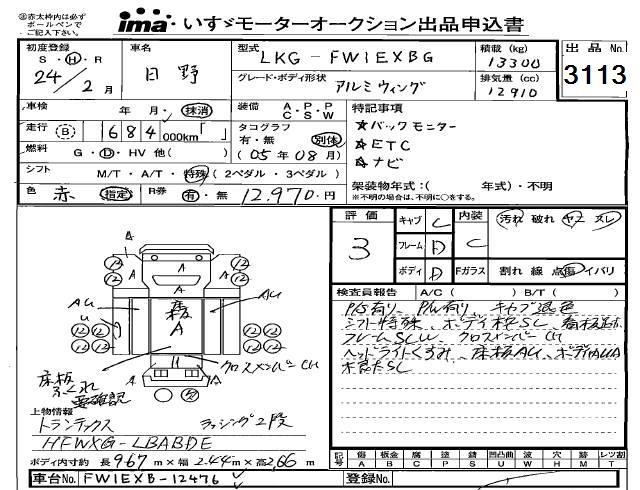 ㊟赤太枠内は必ず
ボールペンで
ご記入下さい。
ima いすゞモーターオークション出品申込書
初度登録 車名 型式 LKG-FW1EXBG 積載(kg) 出品No.
S・H・R 24/2月 日野 13300
グレード・ボディ形状 アルミウィング 排気量(cc) 12910 3113
車検 年 月・抹消 装備 A・P・P C・S・W 特記事項
走行 B 684,000km「 」 タコグラフ 有・無 別体 ☆バックモニター
燃料 G・D・HV 他( ) (05年08月) ☆ETC
☆ナビ
シフト M/T・A/T・特殊(2ペダル・3ペダル) 架装物年式:( 年式)・不明
色 赤 指定 R券 有・無 12,970円 ※不明の場合は、不明に○をする。
評価 キャブ C 内装 汚れ 破れ ヤニ スレ
3 フレーム D C
ボディ D Fガラス 割れ 線 点傷 イバリ
検査員報告 A/C( )B/T( )
P/S有り、P/W有り、キャブ退色
シフト特殊、ボディ枠SC、
フレームSCW、クロスメンバーCH
ヘッドライトくすみ、床板AU、
A
A
A
A
A
AU
AU
U
床板
A
H
A
クロスメンバーCH
床板
ふくれ
要確認
上物情報
トランテックス ラッシング2段
HFWXG-LBABDE
ボディ内寸約 長967m×幅2.44m×高2.66m
記号 傷A 板金B 腐C 塗P 錆S 凹凸曲U 波W 穴H 再X レツ割T
車台No. FW1EXB-12476 登録No.